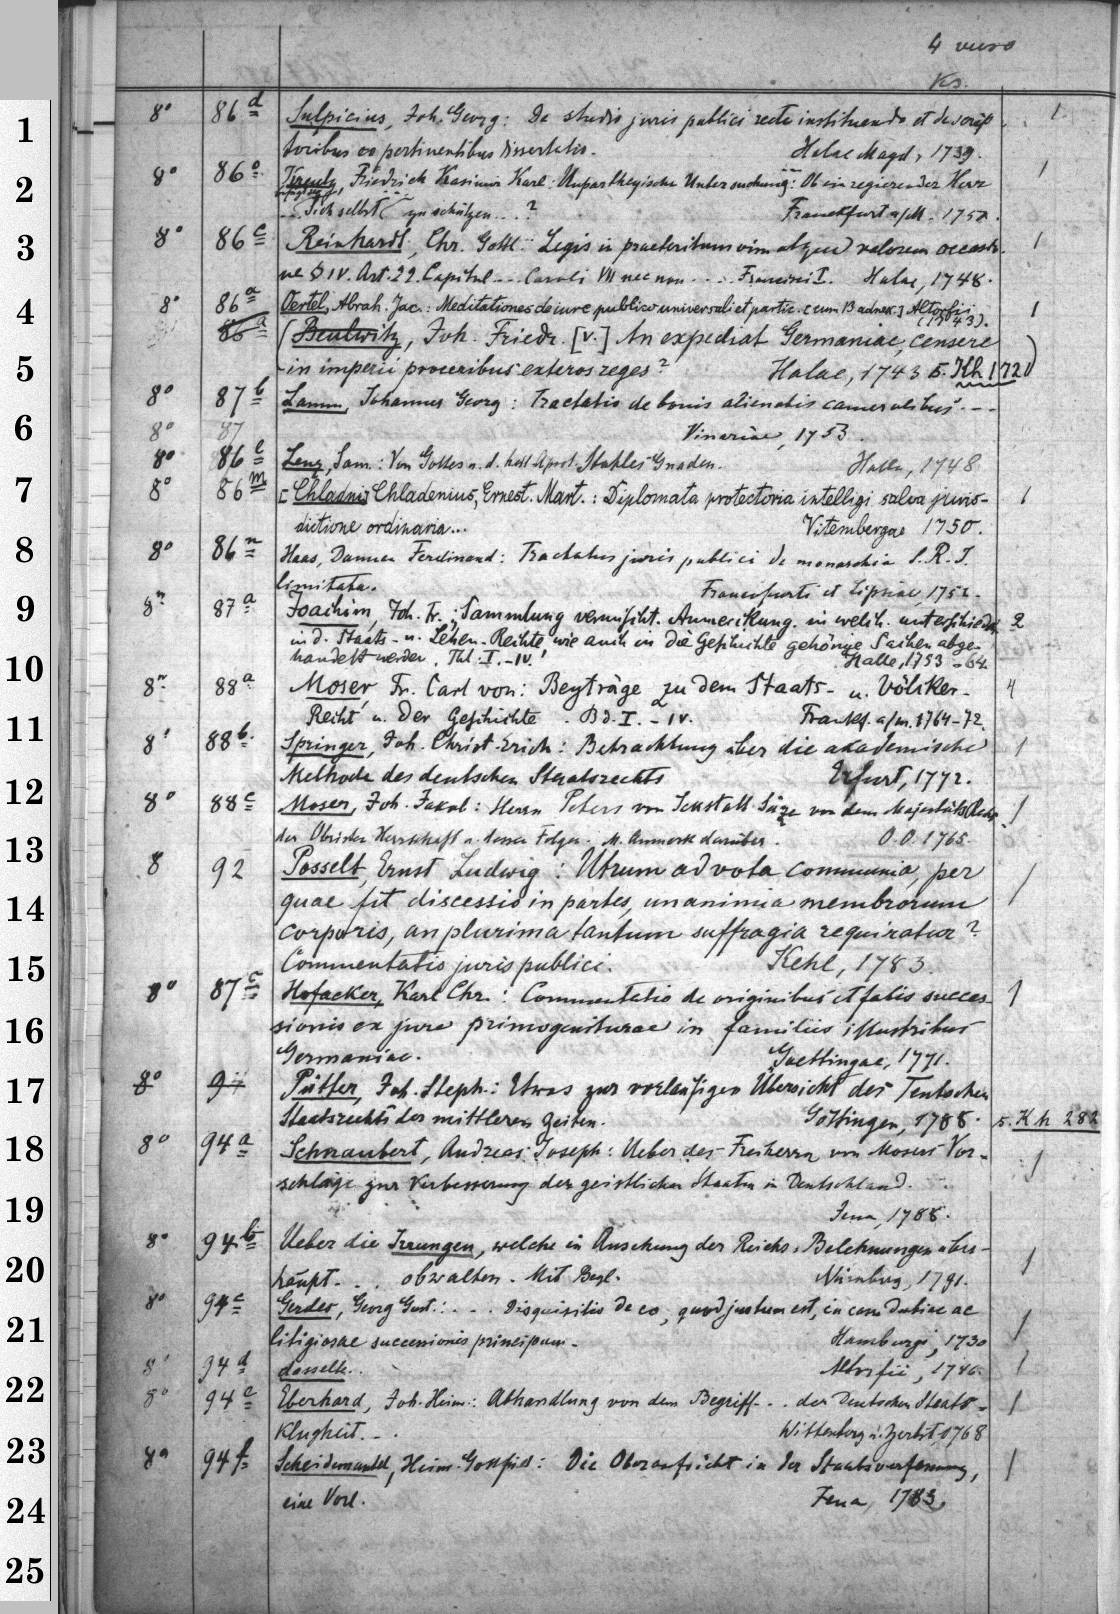 4
Ks.
1 8° 86 d Sulpicius, Joh. Georg: De studio juris publici recte instituendo et de scrip 1
toribus eo pertinentibus Dissertatio. Halae Magd., 1739.
2 8° 86 o Friedrich Kasimir Karl: Unpartheyische Untersuchung: Ob ein regierender Herr 1
Sich selbst zu schützen ... ? Franckfurt a/M. 175
3 8° 86 c Reinhardt, Chr. Gottl. Legis in praeteritum vim atque valorem occasio
ne § IV. Art. 22. Capitul --- Caroli VII nec non ... Francisci I. Halae, 1748. 1
4 8° 86 a Oertel, Abrah. Jac.: Meditationes de iure publico universali et partic. [cum 13 adnex.] Altorfii (1743). 1
86 a (Beulwitz, Joh. Friedr. [v.] An expediat Germaniae, censere
5 in imperii proceribus exteros reges? Halae, 1743 s. Kh 172)
8° 87 b Lamm, Johannes Georg: Tractatio de bonis alienatis cameralibus ---
6 8° 87 Vinariae, 1753.
8° 86 l Lenz, Sam.: Von Gottes u. d. heil Apost. Stuhles Gnaden. Halle, 1748
7 8° 86 m [Chladny] Chladenius, Ernest. Mart.: Diplomata protectoria intelligi salva juris- 1
dictione ordinaria... Vitembergae 1750.
8 8° 86 n Haas, Ferdinand: Tractatus juris publici de monarchia S. R. I.
limitata. Francofurti et Lipsiae, 175
9 8° 87 a Joachim, Joh. Fr.: Sammlung vermischt. Anmerkung. in welch. unterschiedl. 2
in d. Staats- u. Lehen-Rechte wie auch in die Geschichte gehörige Sachen abge-
10 handelt werden. Thl. I.-IV. Halle, 1753-64.
8° 88 a Moser, Fr. Carl von: Beyträge zu dem Staats- u. Völker- 4
11 Recht u. der Geschichte. Bd. I.-IV. Frankf. a/M. 1764-72.
8° 88 b Springer, Joh. Christ. Erich: Betrachtung über die akademische 1
Methode des deutschen Staatsrechts Erfurt, 1772.
12 8° 88 c Moser, Joh. Jakob: Herrn Peters von Ickstatt Säze von dem Majestäts Recht 1
der Obristen Herrschaft u. dessen Folgen. M. Anmerk darüber. O.O. 1765.
13 8 92 Posselt, Ernst Ludwig: Utrum ad vota communia, per
14 quae fit discessio in partes, unanimia membrorum 1
corporis, an plurima tantum suffragia requiratur?
15 Commentatio juris publici. Kehl, 1783.
8° 87 c Hofacker, Karl Chr.: Commentatio de originibus et fatis succes- 1
16 sionis ex jure primogeniturae in familiis illustribus
Germaniae. Goettingae, 1771.
17 8° 9 Pütter, Joh. Steph.: Etwas zur vorläufigen Übersicht des Teutschen
Staatsrechts der mittleren Zeiten. Göttingen, 1788. s. Kh 282
18 8° 94 a Schnaubert, Andreas Joseph: Ueber des Freiherrn von Mosers Vor- 1
schläge zur Verbesserung der geistlichen Staaten in Deutschland.
19 Jena, 1788.
8° 94 b Ueber die Irrungen, welche in Ansehung der Reichs-Belehnungen über-
20 haupt ... obwalten. Mit Beyl. Nürnberg, 1791. 1
8° 94 c Gerdes, Georg Gust.: ... Disquisitio de eo, quod justum est, in casu dubiae ac
21 litigiosae successionis principum. Hamburgi, 1730 1
8° 94 d dasselbe.. Altorfii, 1746. 1
22 8° 94 e Eberhard, Joh. Heinr.: Abhandlung von dem Begriff ... der Deutschen Staats- 1
Klugheit... Wittenberg u. Zerbst, 1768
23 8° 94 f Scheidemantel, Heinr. Gottfried: Die Oberaufsicht in der Staatsverfassung, 1
24 eine Vorl. Jena, 1783.
25